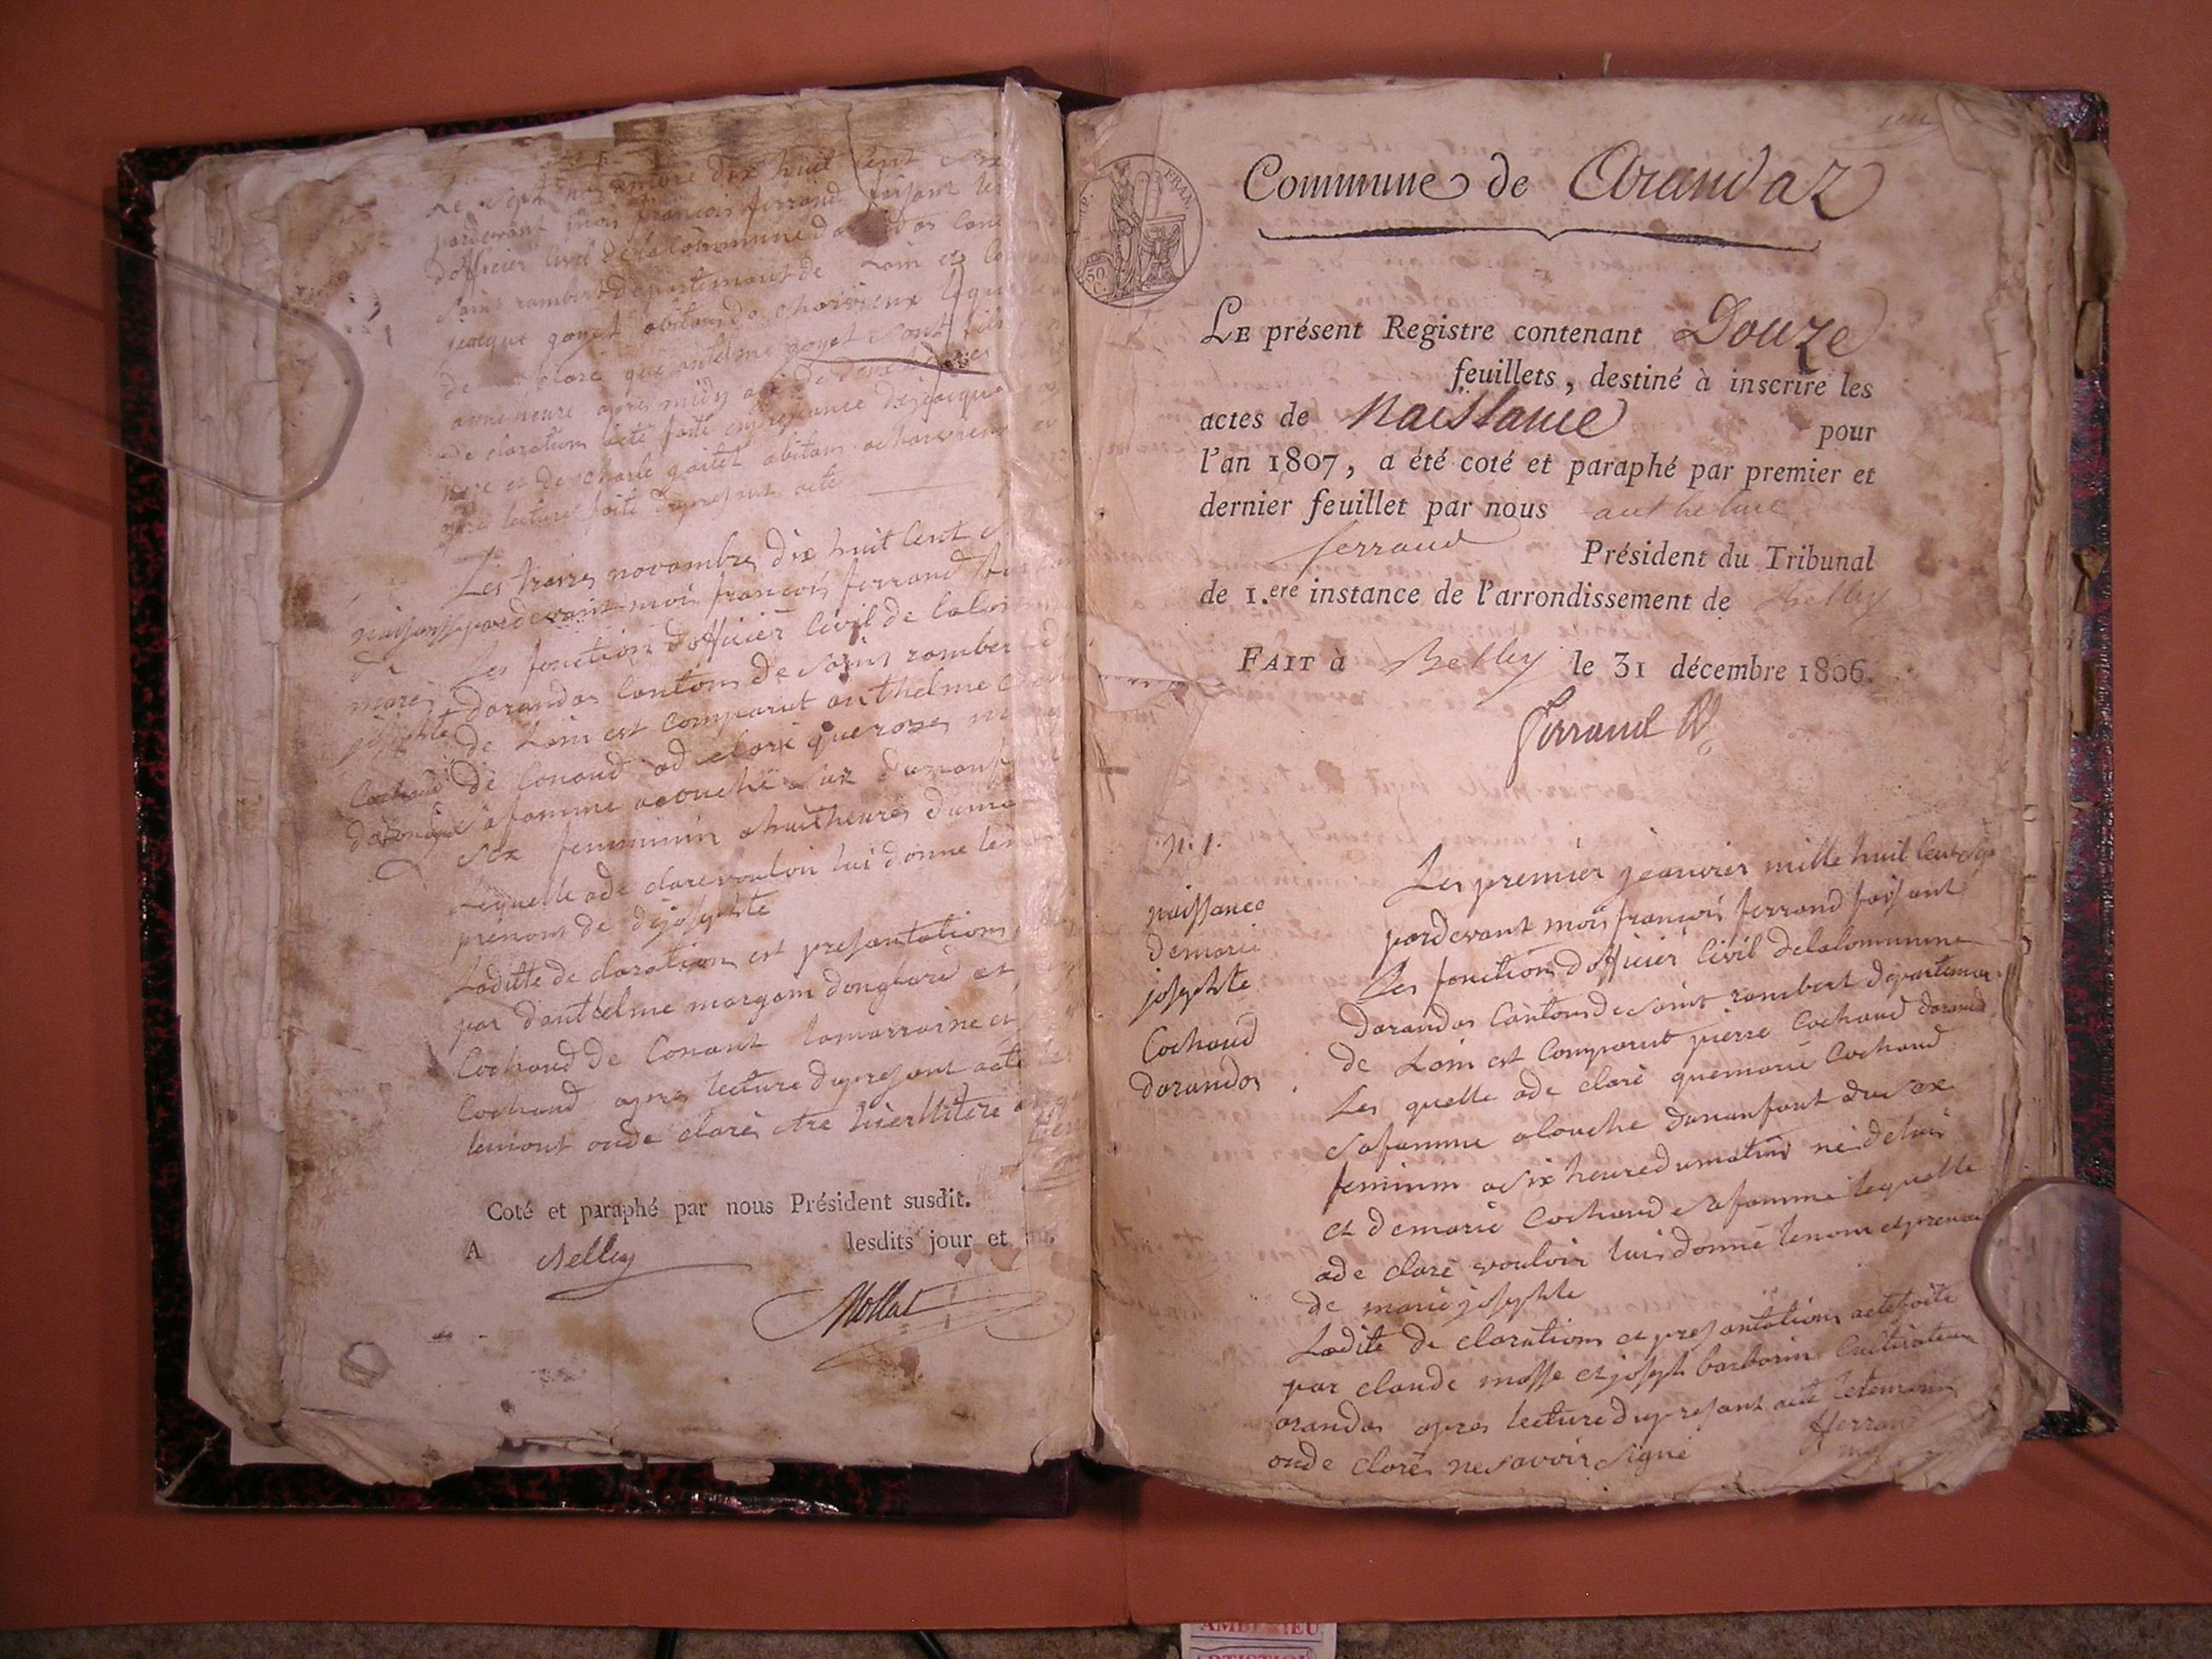 Le sept novambre dix huit cent
pardevant moi françois ferrand faisant les
dofficier civil de la commune darandas can
saint rambert departemant de Lain et
jacque goyet abitans de charvieux lequ
de claré que antelme goyet sont fils
deux heures
de claration acte faite en presance de jacque
pere et de charle goitet abitans acharvieux
apres lecture faite du present acte
Les traize novambre dix huit cent
naissance pardevant moi françois ferrand fai
de Les fonction dofficier civil de la com
marie darandas Canton de saint ramber
josephte de Lain est comparut anthelme
Cochaud de Conand ad claré que rose
sa famme acouché dunanf
sex feminin a huit heures duma
Lequelle ade claré vouloir lui donne le
prenom de dejosephte
Laditte de claration est presantation
par dantelme margain et
Cochaud de Conant lamarraine et
Cochaud apres lecture du presant acte
temont onde claré etre
Coté et paraphé par nous Président susdit.
A Belley lesdits jour et an.
Mollat
un
Commune de Arandaz
P. FRAN.
50 C.
LE présent Registre contenant Douze
feuillets, destiné à inscrire les
actes de Naissance pour
l'an 1807, a été coté et paraphé par premier et
dernier feuillet par nous anthelme
ferrand Président du Tribunal
de 1.ere instance de l'arrondissement de Belley
FAIT à Belley le 31 décembre 1806.
Ferrand
n. 1.
naissance
demarie
josephte
Cochaud
darandas
Les premier jeanvier mille huit cent sept
pardevant moi françois ferrand faisant
Les fonction dofficier Civil delalommune
darandas Canton de saint rambert departemen
de Lain est Comparut pierre Cochaud darand
Les quelle ade claré quemarie Cochaud
safamme alouche dunanfant du sex
feminim a six heure dumatin né de lui
et demarie Cochaud sa famme lequelle
ade claré vouloir lui donné lenom et prenom
de marie josephte
Ladite de claration et presantation acte faite
par claude masse et joseph barbarin Cultivateur
arandas apres lecture du presant acte letemoin
onde claré nesavoir signé
fferrand
AMBERIEU
ARTISTIQU